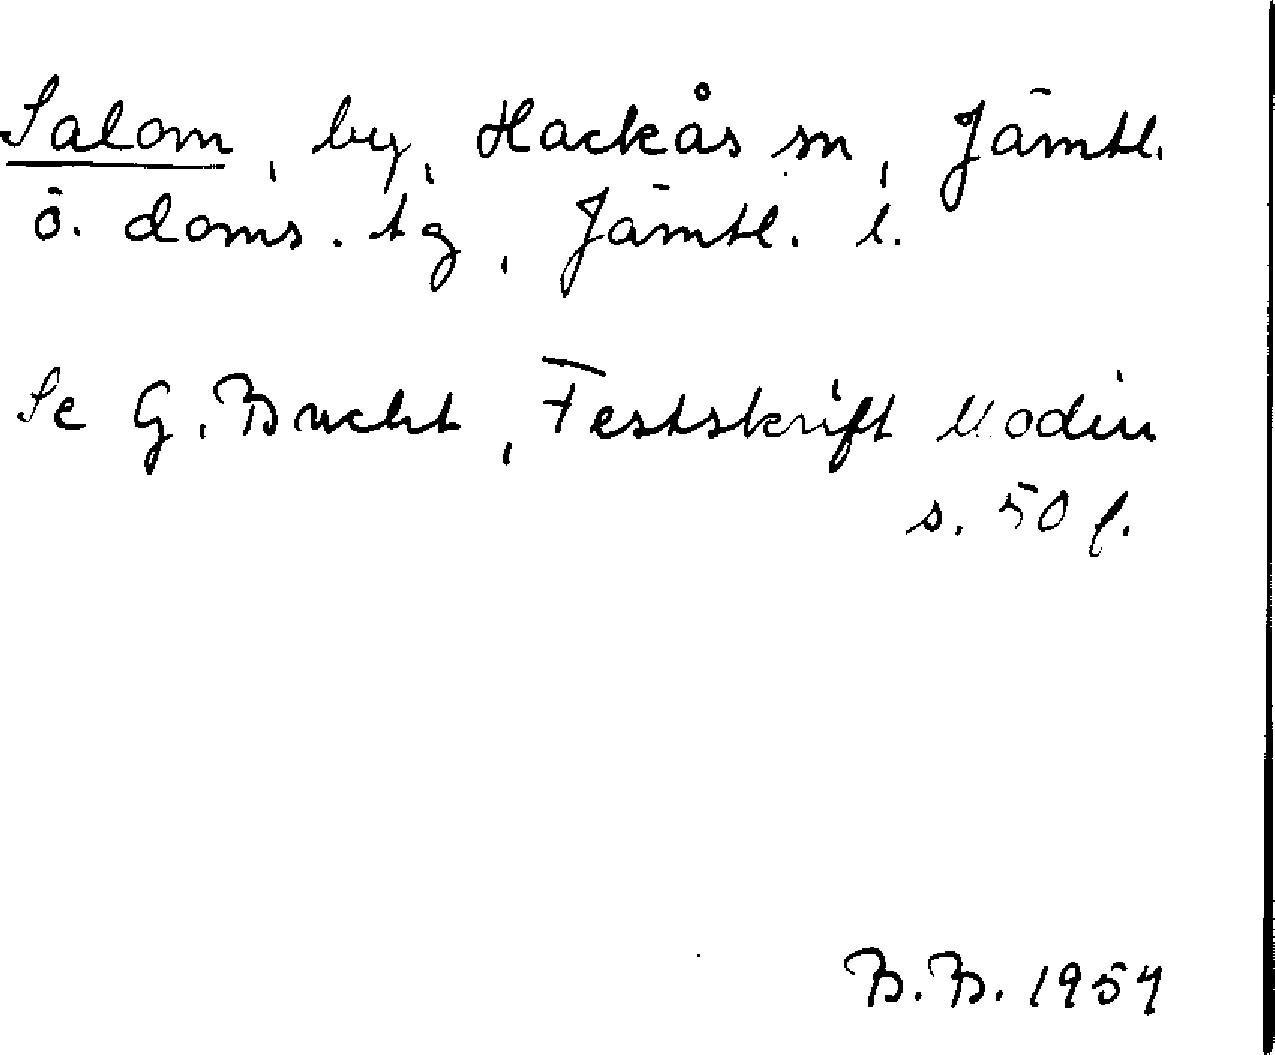 Salom, by, Hackås sn, Jämtl.
ö. doms. tg, Jämtl. l.
Se G. Bucht, Festskrift Modin
s. 50 f.
B.B. 1954